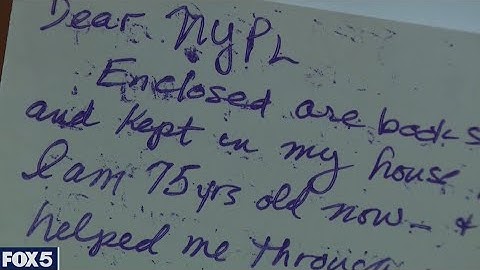 Dear NYPL
Enclosed are books
and kept in my house
I am 75 yrs old now - &
helped me through
FOX 5